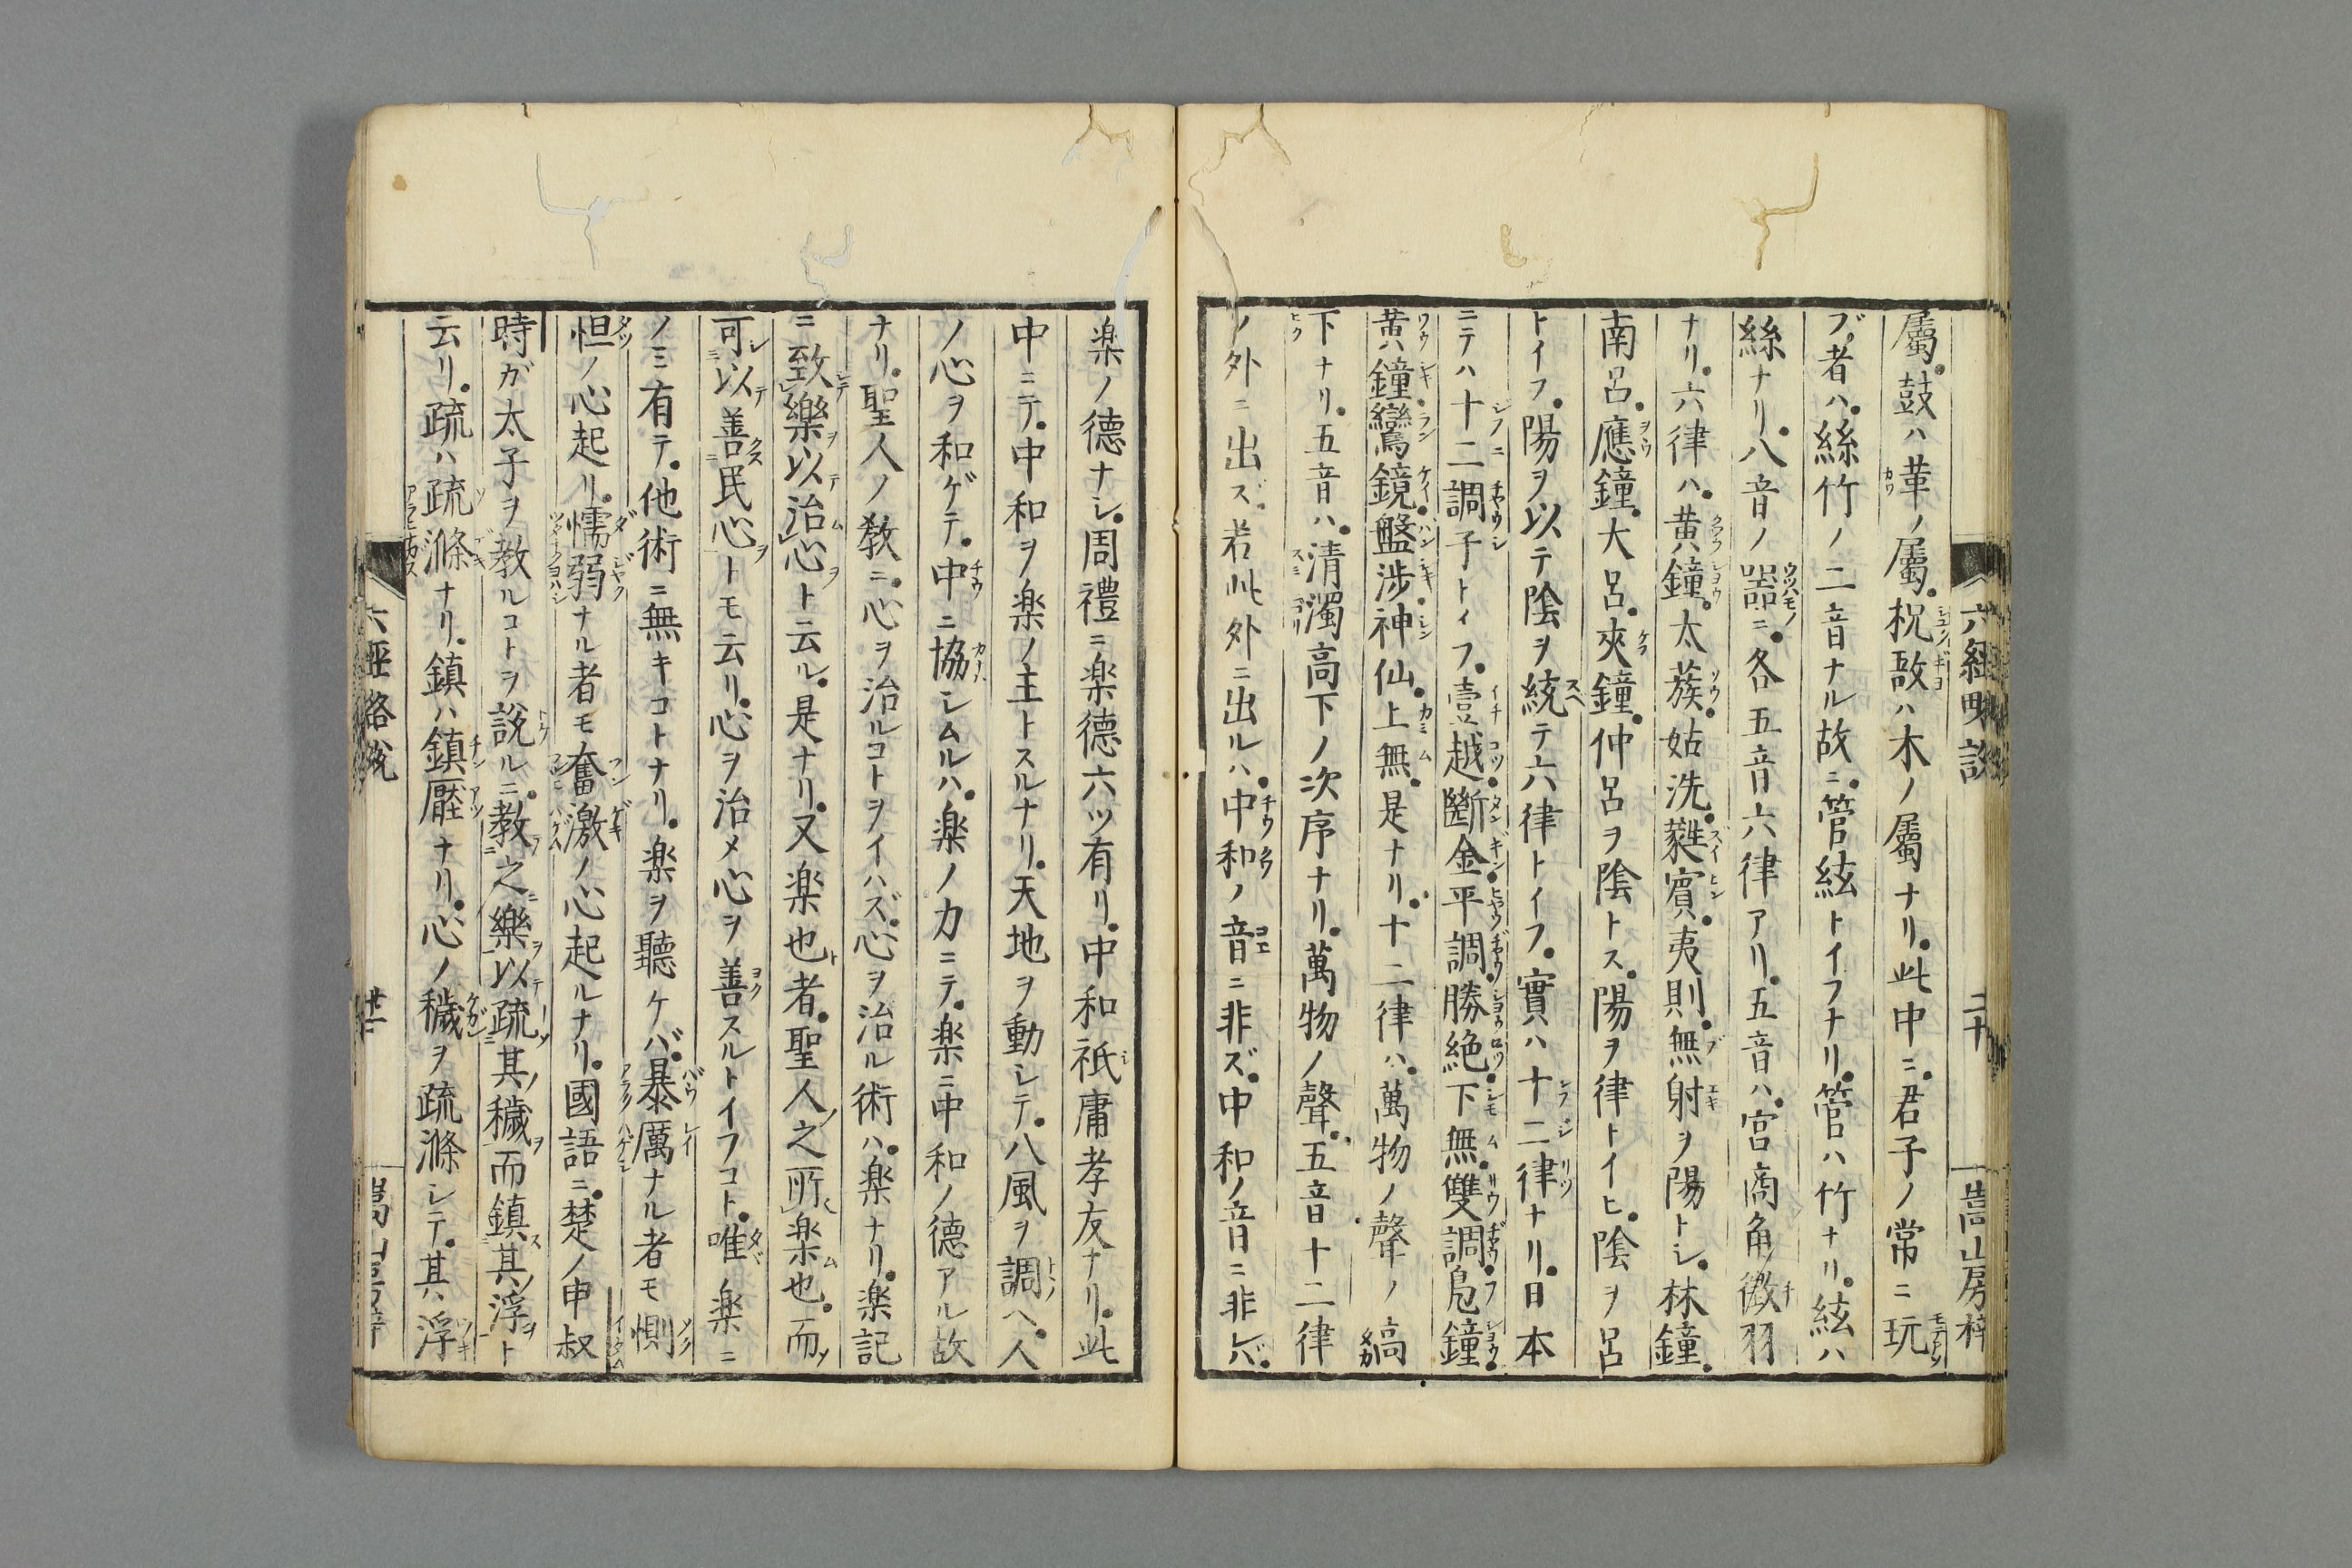 六經略説
二十
嵩山房梓
屬。鼓ハ革ノ屬。柷敔ハ木ノ屬ナリ。此中ニ。君子ノ常ニ玩
ブ者ハ。絲竹ノ二音ナル故ニ。管絃トイフナリ。管ハ竹ナリ。絃ハ
絲ナリ。八音ノ器ニ。各五音六律アリ。五音ハ。宮商角徴羽
ナリ。六律ハ。黄鐘。太蔟。姑洗。蕤賓。夷則。無射ヲ陽トシ。林鐘。
南呂。應鐘。大呂。夾鐘。仲呂ヲ陰トス。陽ヲ律トイヒ。陰ヲ呂
トイフ。陽ヲ以テ陰ヲ統テ六律トイフ。實ハ十二律ナリ。日本
ニテハ十二調子トイフ。壹越。斷金。平調。勝絶。下無。雙調。鳬鐘。
黄鐘。鸞鏡。盤涉。神仙。上無。是ナリ。十二律ハ。萬物ノ聲ノ高
下ナリ。五音ハ。清濁高下ノ次序ナリ。萬物ノ聲。五音十二律
ノ外ニ出ズ。若此外ニ出ルハ。中和ノ音ニ非ズ。中和ノ音ニ非レバ。
楽ノ德ナシ。周禮ニ楽德六ツ有リ。中和祇庸孝友ナリ。此
中ニテ。中和ヲ楽ノ主トスルナリ。天地ヲ動シテ。八風ヲ調ヘ。人
ノ心ヲ和ゲテ。中ニ協シムルハ。楽ノ力ニテ。楽ニ中和ノ德アル故
ナリ。聖人ノ敎ニ。心ヲ治ルコトヲイハズ。心ヲ治ル術ハ。楽ナリ。楽記
ニ致樂以治心ト云ル。是ナリ。又楽也者。聖人之所楽也。而
可以善民心トモ云リ。心ヲ治メ心ヲ善スルトイフコト。唯楽ニ
ノミ有テ。他術ニ無キコトナリ。楽ヲ聽ケバ。暴厲ナル者モ惻
怛ノ心起リ。懦弱ナル者モ奮激ノ心起ルナリ。國語ニ。楚ノ申叔
時ガ太子ヲ教ルコトヲ說ルニ。教之樂以疏其穢而鎮其浮ト
云リ。疏ハ疏滌ナリ。鎮ハ鎮壓ナリ。心ノ穢ヲ疏滌シテ。其浮
六經略說